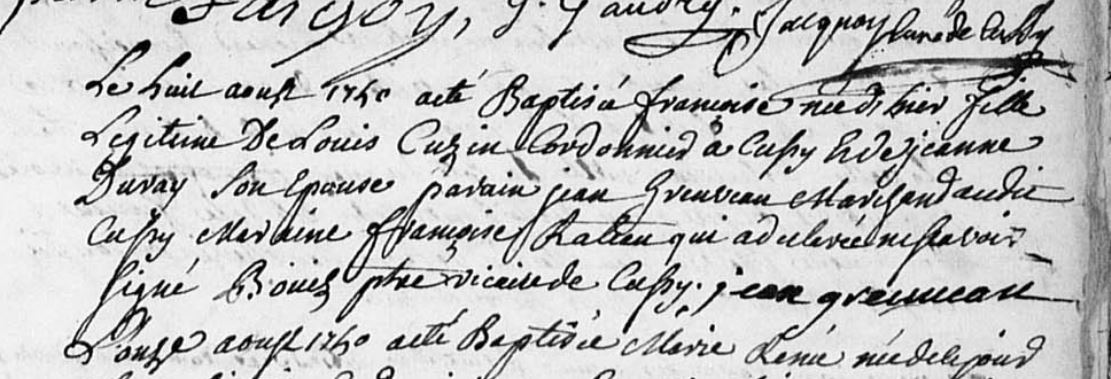 J. Gaudry. Jacquoy Curé de Cussy
Le huit aoust 1740 a eté Baptisée françoise née d'hier fille
Legitime De Louis Cuzin Cordonnier à Cussy et de jeanne
Duray Son Epouse parain jean Greuveau Marchand audit
Cussy Maraine françoise Rateau qui a declarée ne sçavoir
signé ptre vicaire de Cussy. jean
L'onze aoust 1740 a eté Baptisée Marie née de ce jour